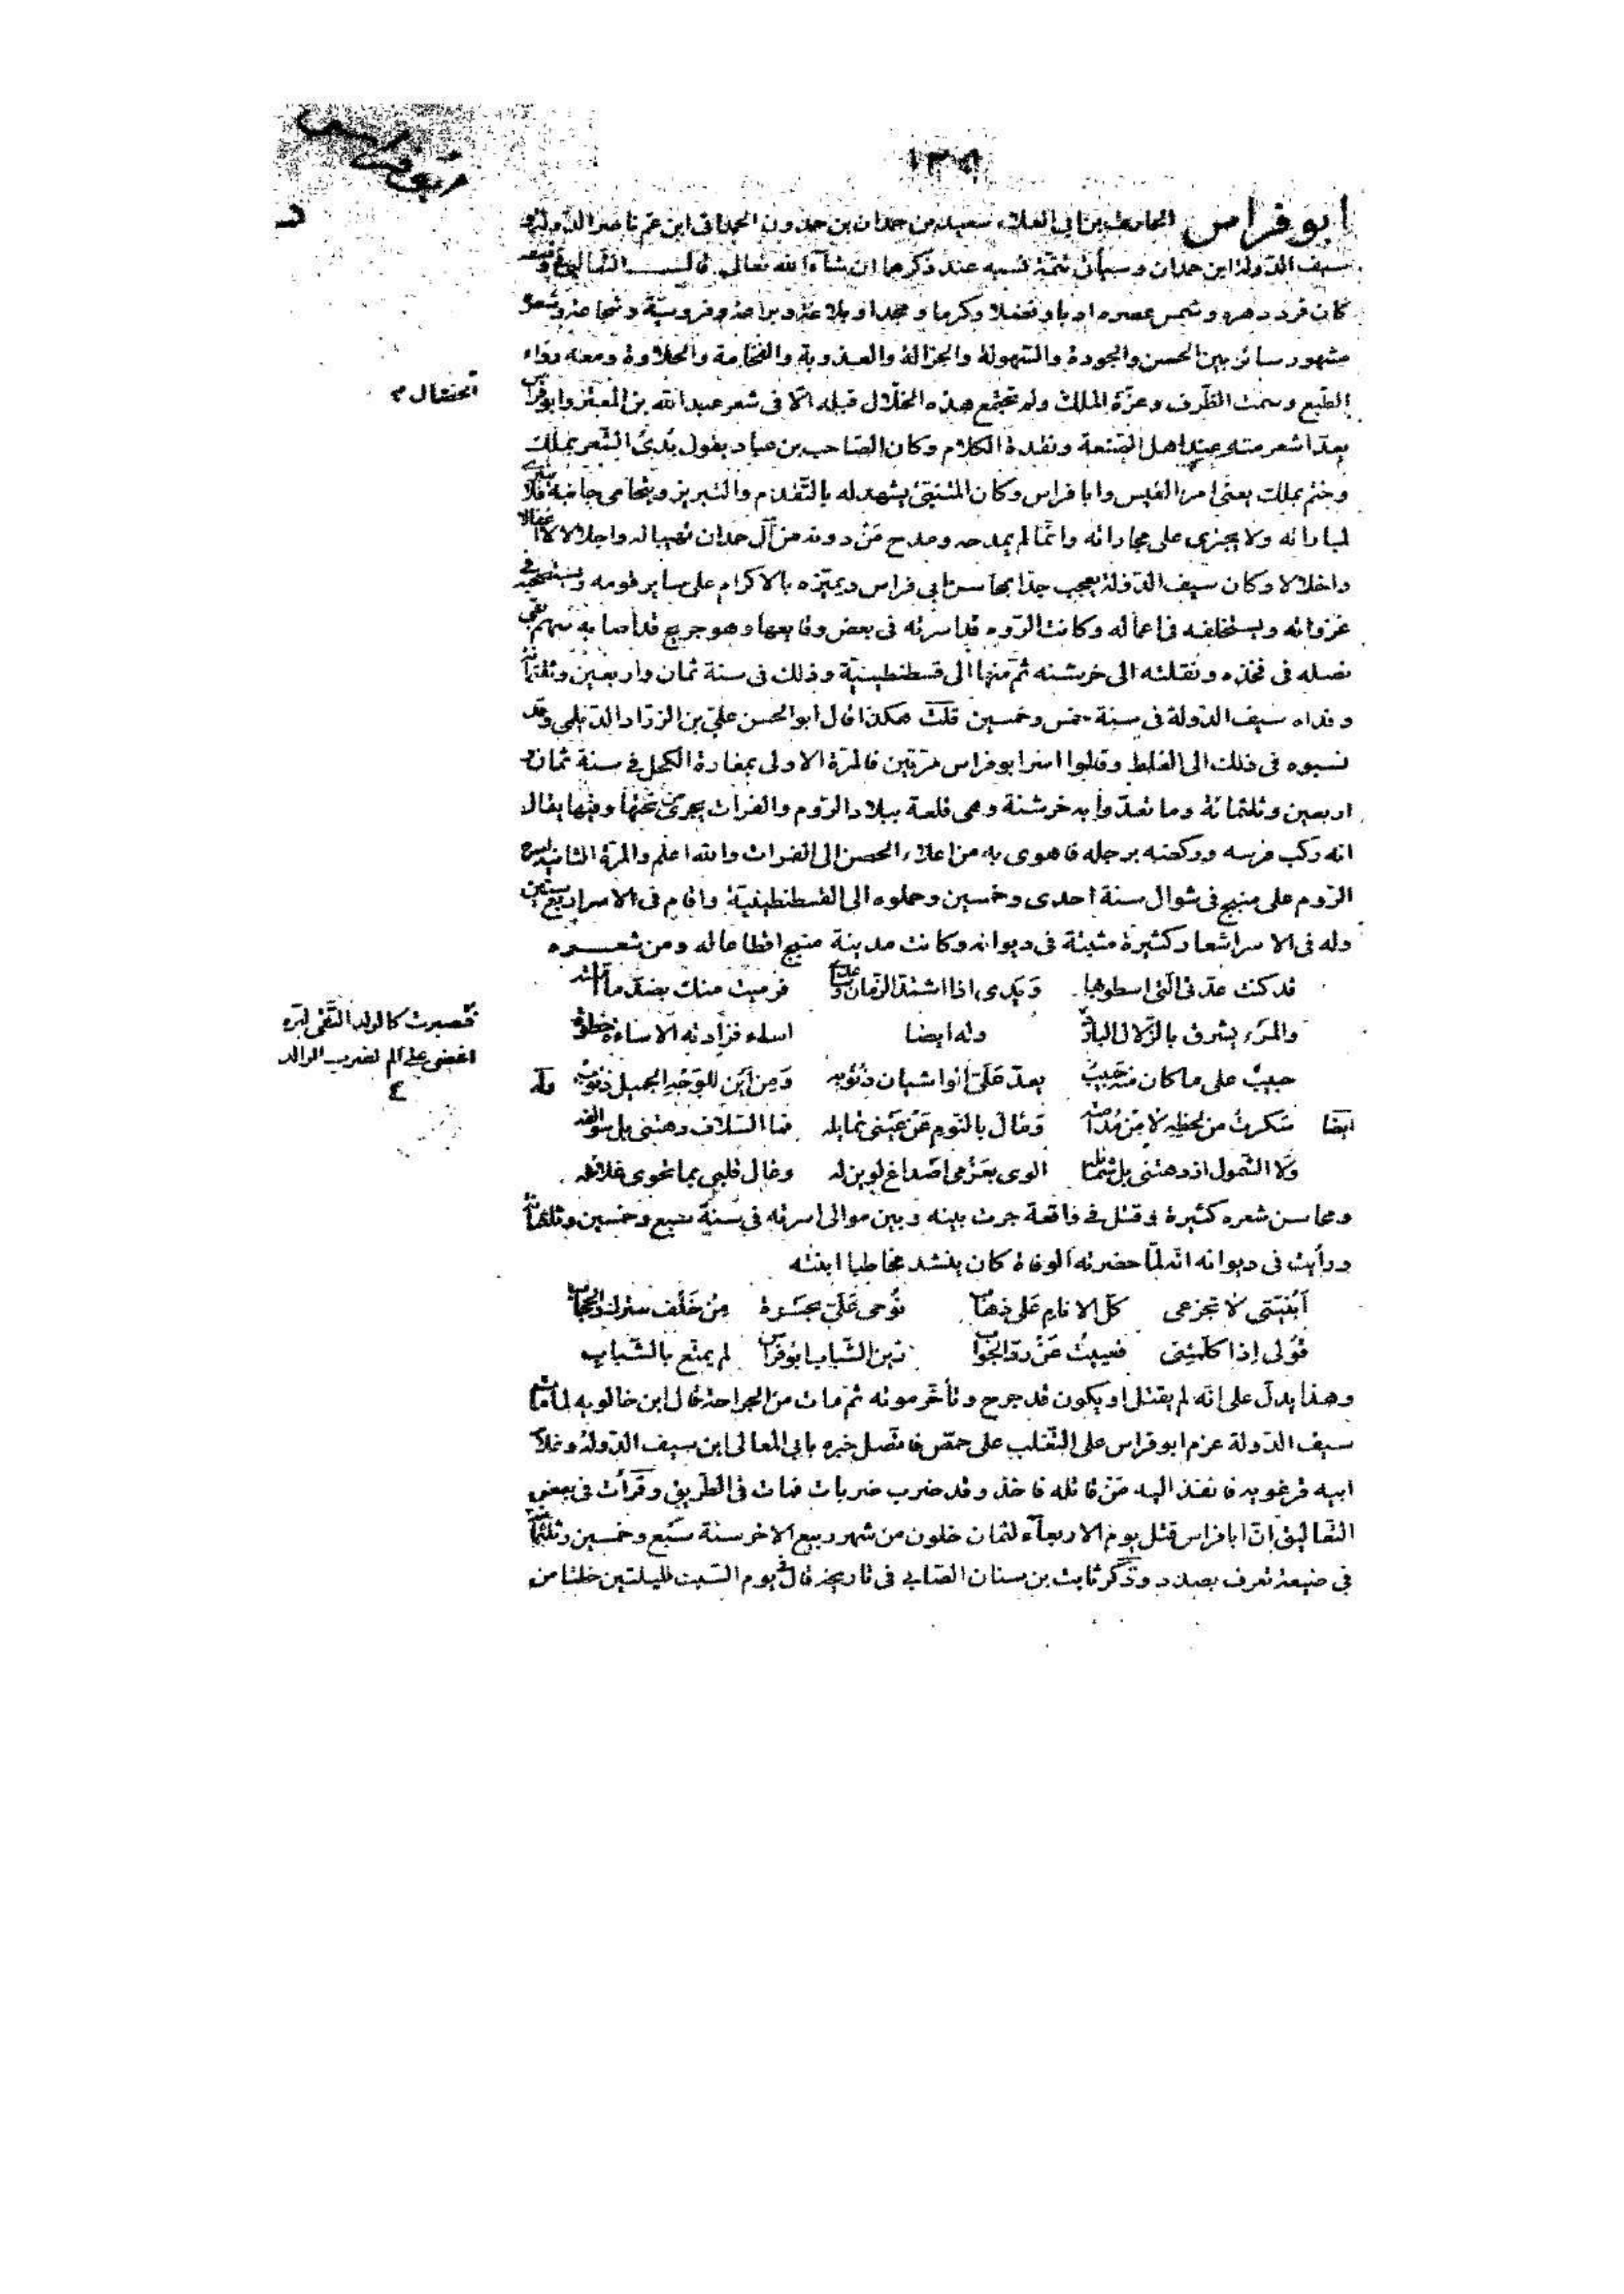 ١٣٩
ابو فراس الحارث بن ابي العلاء سعيد بن حمدان بن حمدون الحمدانی ابن عم ناصر الدولة و
سيف الدولة ابن حمدان وسيأتی تتمة نسبه عند ذكرهما ان شآء الله تعالی قال الثعالبی فی وصفه
كان فرد دهره وشمس عصره ادبا وفضلا وكرما ومجدا وبلاغة وبراعة وفروسية وشجاعة وشعره
مشهور سائر بين الحسن والجودة والسهولة والجزالة والعذوبة والفخامة والحلاوة ومعه رواء
الطبع وسمت الظرف وعزة الملك ولم تجتمع هذه الخلال قبله الا فی شعر عبد الله بن المعتز وابو فراس
الخصال
يعد اشعر منه عند اهل الصنعة ونقدة الكلام وكان الصاحب بن عباد يقول بُدئ الشعر بملك
وختم بملك يعنی امرء القيس وابا فراس وكان المتنبی يشهد له بالتقدم والتبريز ويتحامی جانبه فلا ينبری
لمباراته ولا يجتری علی مجاراته وانما لم يمدحه ومدح من دونه من آل حمدان تهيبا له واجلالا لا اغفالا
واخلالا وكان سيف الدولة يعجب جدا بمحاسن ابی فراس ويميزه بالاكرام علی سایر قومه ويستصحبه فی
غزواته ويستخلفه فی اعماله وكانت الروم قد اسرته فی بعض وقایعها وهو جريح قد اصابه سهم بقی
نصله فی فخذه ونقلته الی خرشنه ثم منها الی قسطنطينية وذلك فی سنة ثمان واربعين وثلثمائة
وفداه سيف الدولة فی سنة خمس وخمسين قلت هكذا قال ابو الحسن علی بن الزراد الديلمی وقد
نسبوه فی ذلك الی الغلط وقالوا اسر ابو فراس مرتين فالمرة الاولی بمغارة الكحل فی سنة ثمان و
اربعين وثلثمائة وما تعدوا به خرشنة وهی قلعة ببلاد الروم والفرات يجری من تحتها وفيها يقال
انه ركب فرسه وركضه برجله فاهوی به من اعلاء الحصن الی الفرات والله اعلم والمرة الثانية اسره
الروم علی منبج فی شوال سنة احدی وخمسين وحملوه الی القسطنطينية واقام فی الاسر اربع سنين
وله فی الاسر اشعار كثيرة مثبتة فی ديوانه وكانت مدينة منبج اقطاعا له ومن شعره
قد كنت عدتی التی اسطو بها ويدی اذا اشتد الزمان وساعدی فرميت منك بضد ما املته
والمرء يشرق بالزلال البارد وله ايضا اساء فزادته الاساءة حظوة
فصبرت كالولد التقی لبره
اغضی علی الم لضرب الوالد
٤
حبيب علی ما كان منه حبيب يعد علی الواشيان ذنوبه ومن اين للوجه الجميل ذنوب وله
ايضا سكرت من لحظه لا من مدامته ومال بالنوم عن عينی تمايله فما السلاف دهتنی بل سوالفه
ولا الشمول ازدهتنی بل شمائله الوی بعزمی اصداغ لوين له وغال قلبی بما تحوی غلائله
ومحاسن شعره كثيرة وقتل فی واقعة جرت بينه وبين موالی اسرته فی سنة سبع وخمسين وثلثمائة
ورأيت فی ديوانه انه لما حضرته الوفاة كان ينشد مخاطبا ابنته
ابنيتی لا تجزعی كل الانام علی ذهاب نوحی علی بحسرة من خلف سترك والحجاب
قولی اذا كلمتنی فعييت عن رد الجواب زين الشباب ابو فراس لم يمتع بالشباب
وهذا يدل علی انه لم يقتل او يكون قد جرح وتأخر موته ثم مات من الجراحة قال ابن خالويه لما مات
سيف الدولة عزم ابو فراس علی التغلب علی حمص فاتصل خبره بابی المعالی ابن سيف الدولة وغلام
ابيه قرغويه فانفذ اليه من قاتله فاخذ وقد ضرب ضربات فمات فی الطريق وقرأت فی بعض
التعاليق ان ابا فراس قتل يوم الاربعآء لثمان خلون من شهر ربيع الاخر سنة سبع وخمسين وثلثمائة
فی ضيعة تعرف بصدد وذكر ثابت بن سنان الصابی فی تاريخه قال فی يوم السبت لليلتين خلتا من